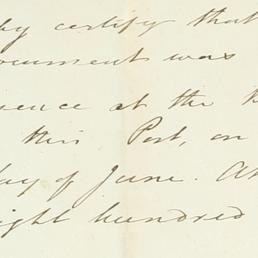 by certify that
ocument was
sence at the
this Post, on
day of June. A
ight hundred